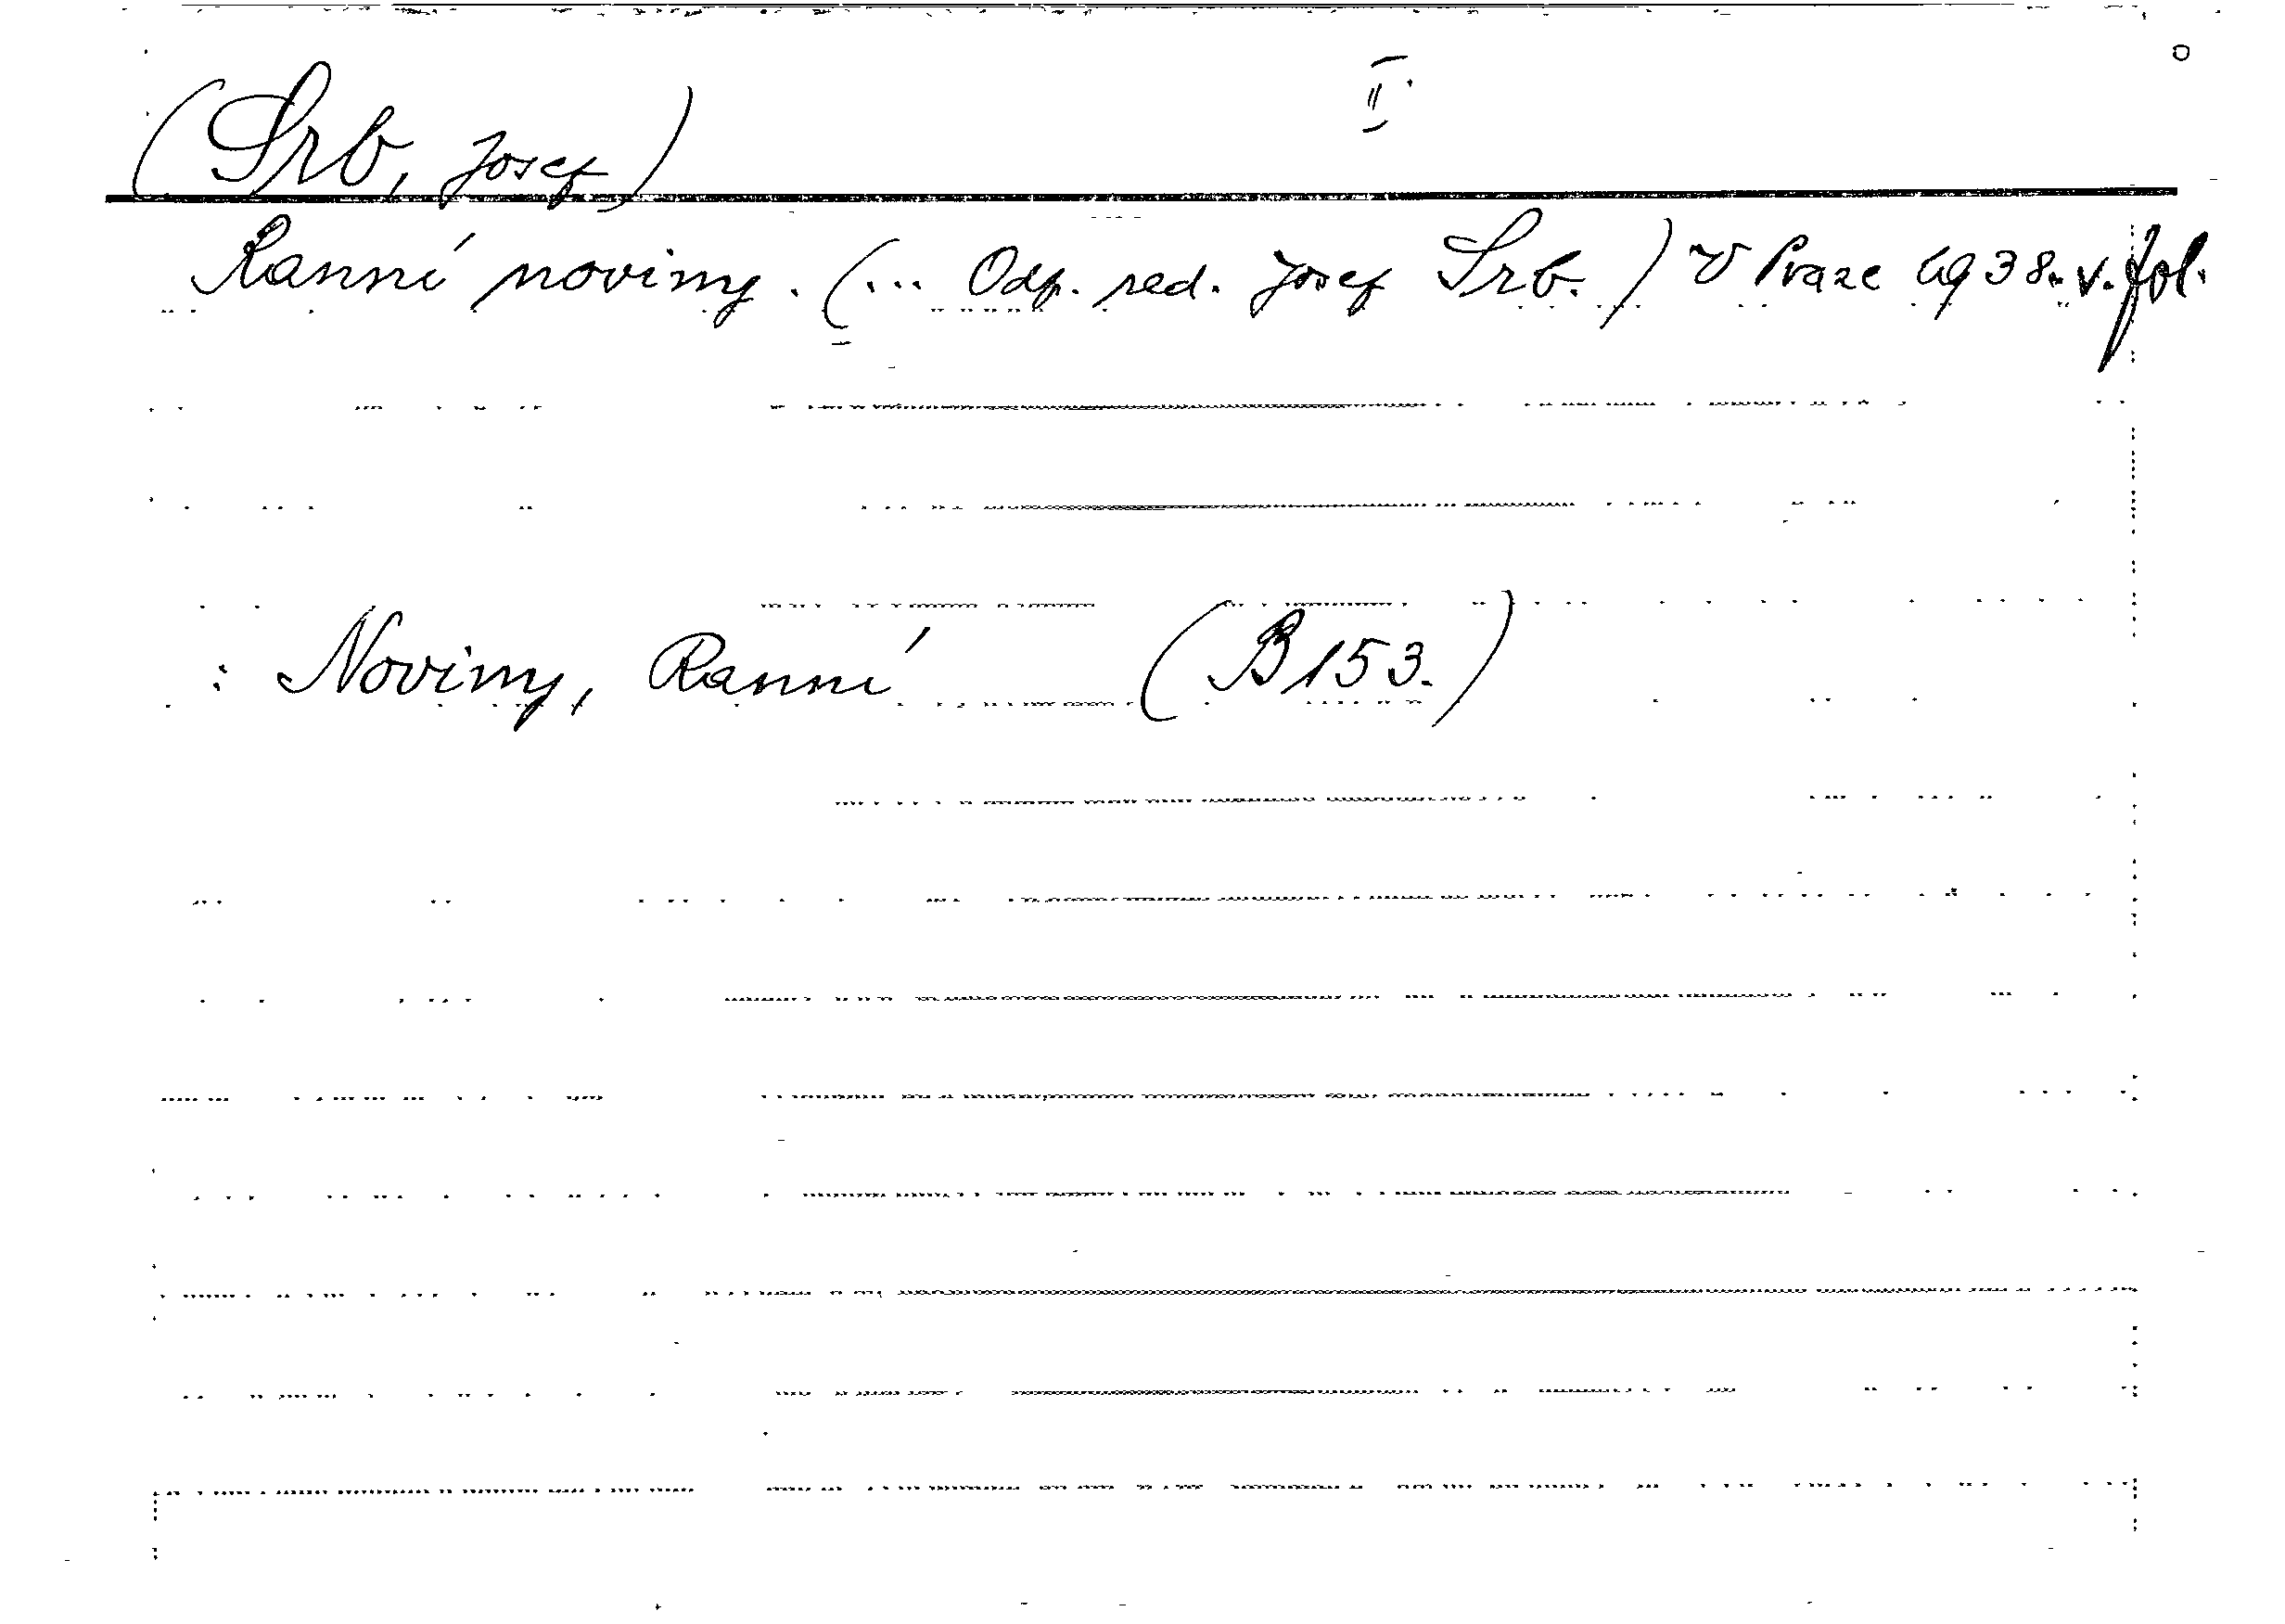 (Srb, Josef) II.
Ranní noviny. (... Odp. red. Josef Srb.) V Praze 1938. v. fol.
: Noviny, Ranní (B 153.)